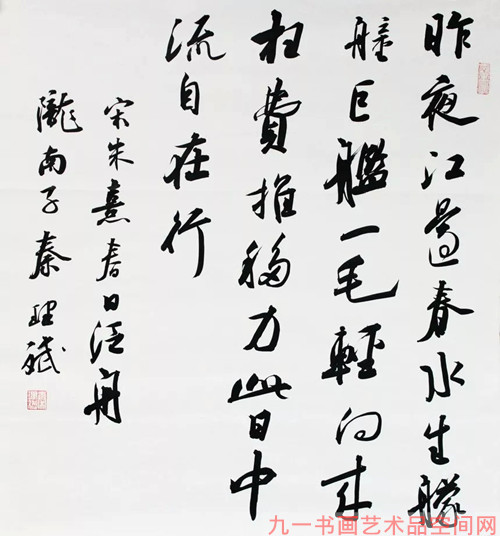 昨夜江邊春水生艨
艟巨艦一毛輕向来
枉費推移力此日中
流自在行
宋朱熹春日泛舟
隴南子秦理斌
九一书画艺术品空间网